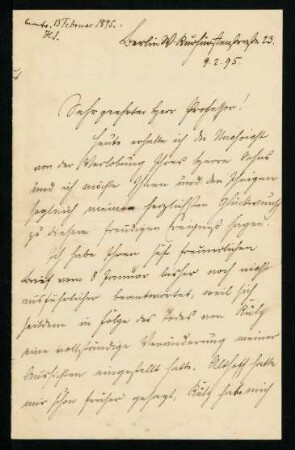 13 Februar 1895.
Berlin W Kurfürstenstraße 23.
9.2.95.
Sehr geehrter Herr Professor!
Heute erhalte ich die Nachricht
von der Verlobung Ihres Herrn Sohns
und ich möchte Ihnen und den Ihrigen
sogleich meinen herzlichsten Glückwunsch
zu diesem freudigen Ereigniß sagen.
Ich habe Ihren sehr freundlichen
Brief vom 8 Januar bisher noch nicht
ausführlicher beantwortet, weil sich
seitdem in Folge des Todes von Külz
eine vollständige Veränderung meiner
Aussichten eingestellt hatte. Althoff hatte
mir schon früher gesagt, Külz habe mich